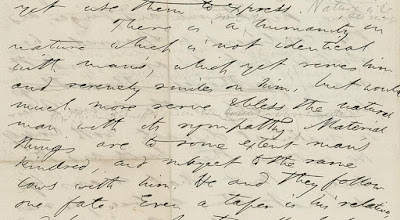 yet use them to express. Nature
There is a humanity in
nature which is not identical
with man's, which yet serves him
and serenely smiles on him, but would
much more serve & bless the natural
man with its sympathy. Material
things are to some extent man's
kindred, and subject to the same
laws with him. He and they follow
one fate. Even a taper is his relative,